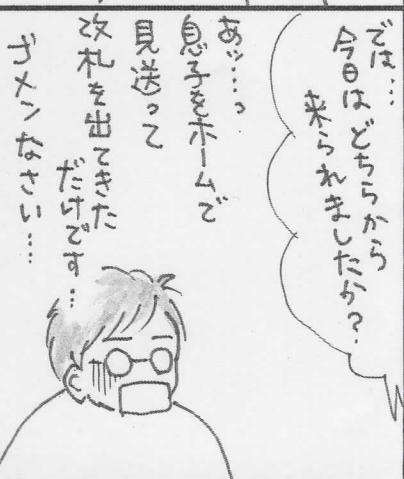 では…
今日はどちらから
来られましたか？
あッ…っ
息子をホームで
見送って
改札を出てきた
だけです…
ゴメンなさい…